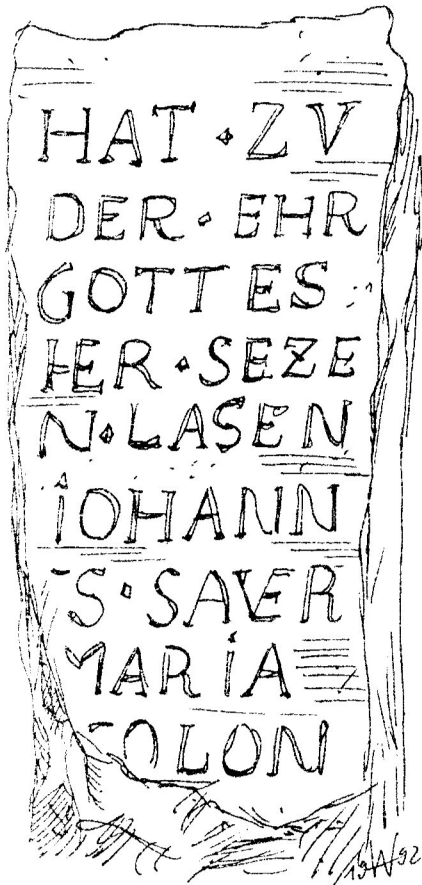 HAT · ZV
DER · EHR
GOTTES
HER · SEZE
N · LASEN
IOHANN
S · SAVER
MARIA
OLON
19 92